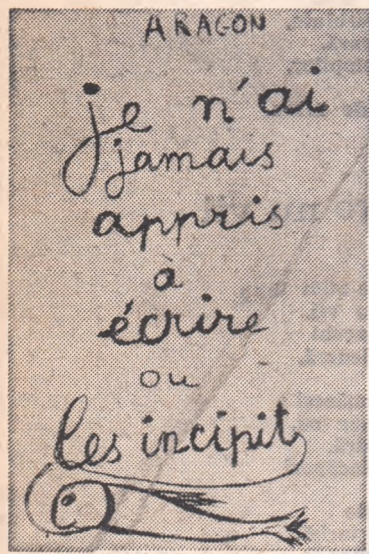 ARAGON
je n'ai
jamais
appris
à
écrire
ou
les incipit